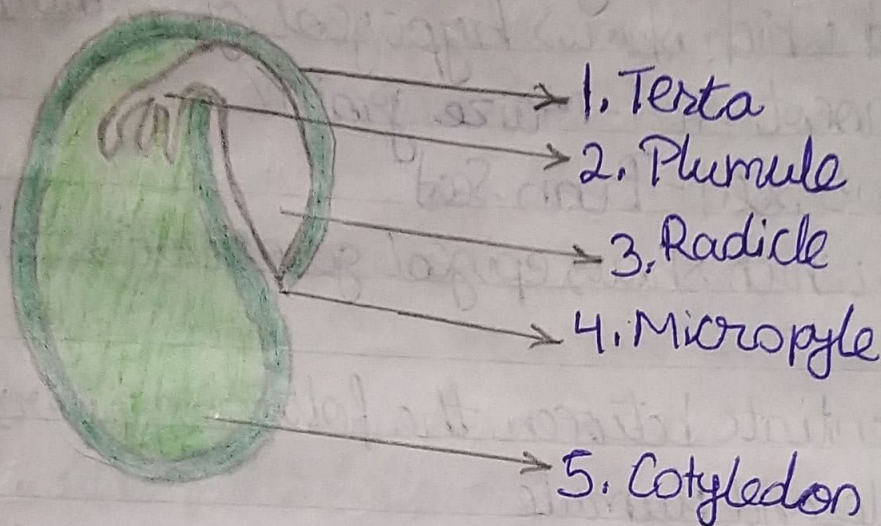 1. Testa
2. Plumule
3. Radicle
4. Micropyle
5. Cotyledon